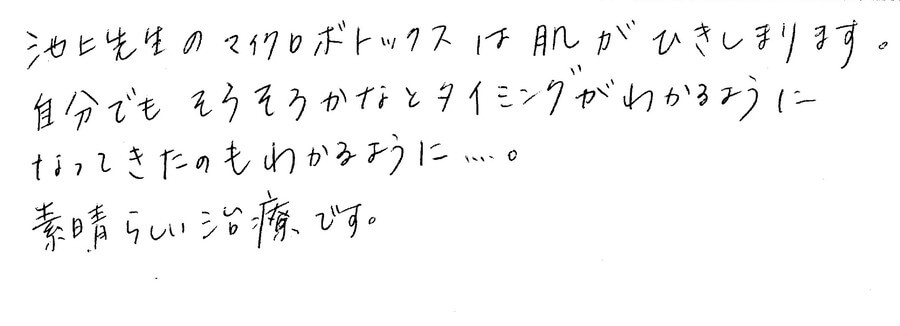 池上先生のマイクロボトックスは肌がひきしまります。
自分でもそろそろかなとタイミングがわかるように
なってきたのもわかるように....。
素晴らしい治療です。